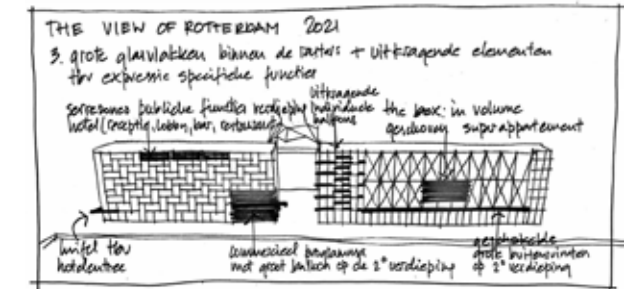 THE VIEW OF ROTTERDAM 2021
3. grote glasvlakken binnen de rasters + uitkragende elementen
tbv expressie specifieke functies
publieke functies verdieping
hotel (receptie, lobby, bar, restaurant)
uitkragende
individuele
balkons
the box: in volume
geschoven superappartement
luifel tbv
hotelentree
commercieel programma
met groot balkon op de 2e verdieping
geschakelde
grote buitenruimten
op 2e verdieping